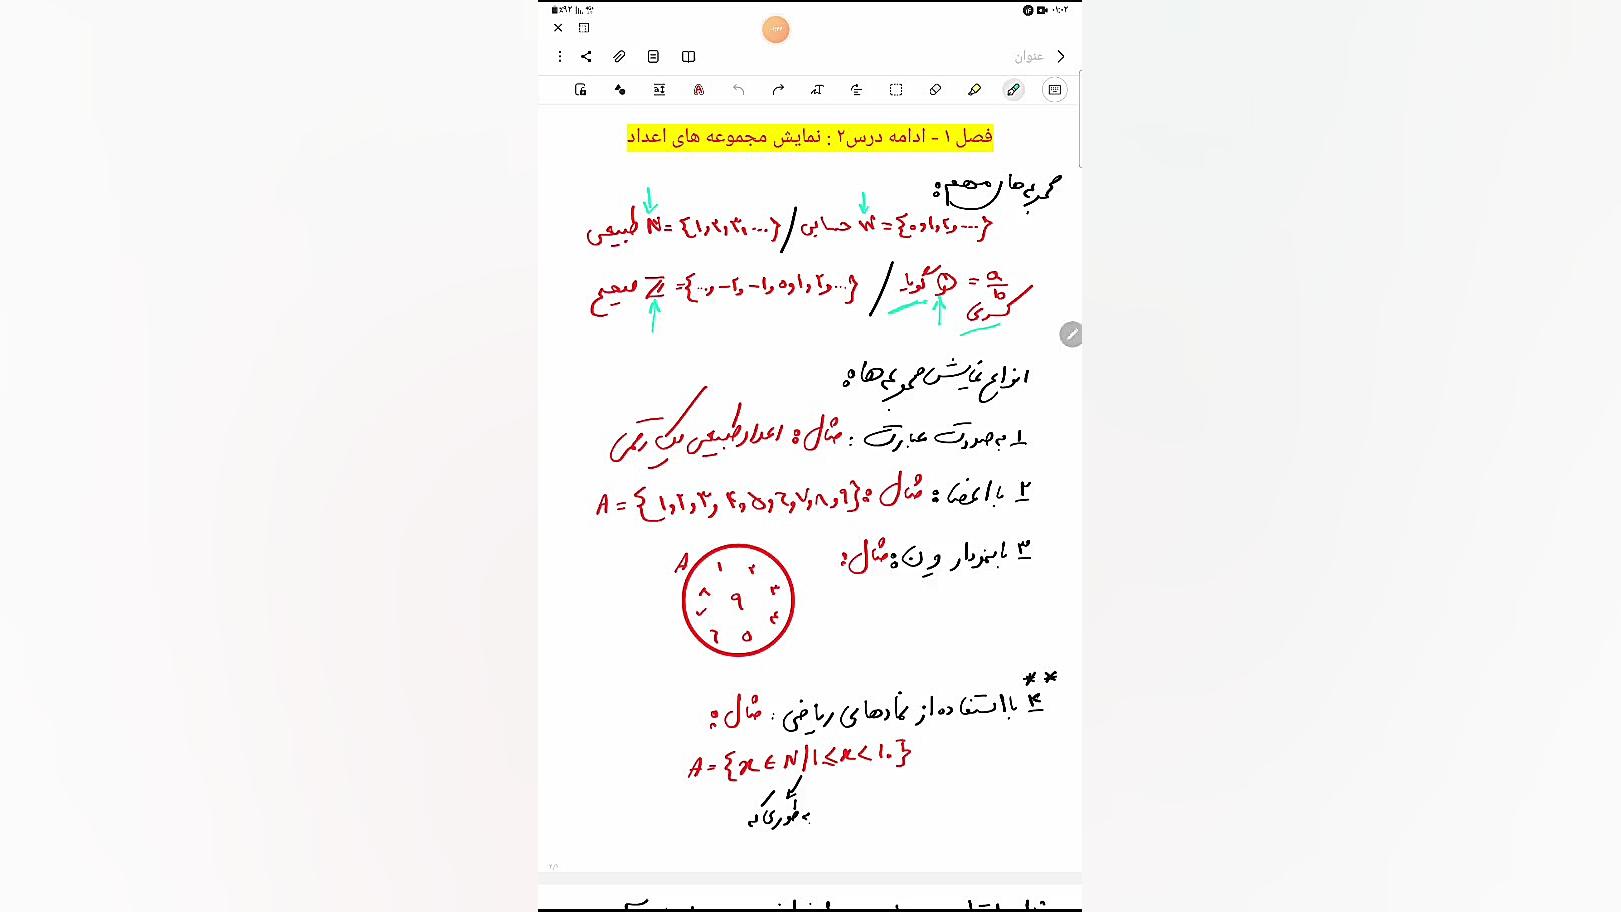 ٪۹۲ ۰۱:۰۲
عنوان
فصل ۱ - ادامه درس۲ : نمایش مجموعه های اعداد
مجموعه‌های مهم:
طبیعی N = {۱,۲,۳, ...} / حسابی W = {۰,۱,۲, ...}
صحیح Z = {..., -۲, -۱, ۰, ۱, ۲, ...} / گویا Q = a/b
کسری
انواع نمایش مجموعه‌ها:
۱ به صورت عبارت : مثال: اعداد طبیعی یک رقمی
۲ با اعضا : مثال : A = {۱,۲,۳,۴,۵,۶,۷,۸,۹}
۳ با نمودار ون : مثال:
A ۱ ۲ ۳ ۴ ۵ ۶ ۷ ۸ ۹
**
۴ با استفاده از نمادهای ریاضی : مثال:
A = {x ∈ N | ۱ ≤ x < ۱۰}
به طوری که
۲/۱